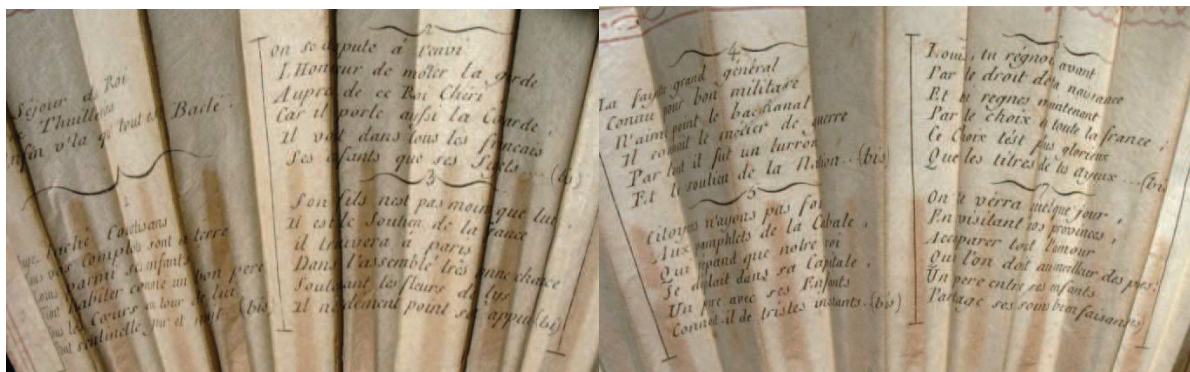 Séjour du Roi
Thuilleries
Enfin v'la qu'tout est Bacle.
1
Courtisans
vos complots sont a terre
Louis parmi ses enfants
Vient habiter comme un bon pere
Tous les Cœurs au tour de lui
Font sentinelle jour et nuit. (bis)
2
on se dispute à l'envi
L'Honneur de monter la garde
Aupres de ce Roi Chéri
Car il porte aussi la Cocarde,
Il voit dans tous les francais
Ses enfants que ses Sujets... (bis)
3
Son fils n'est pas moins que lui
Il est le Soutien de la france
il trouvera a paris
Dans l'assemblé três
Soutenant les fleurs de lys
Il ne dement point son appui (bis)
4
La fayette grand général
Connu pour bon militaire
N'aime point le bacchanal
Il connoit le métier de guerre
Par tout il fut un lurron
Et le soutien de la Nation.. (bis)
5
Citoyens n'ayons pas foi
Aux pamphlets de la Cabale,
Qui repand que notre roi
Se déplait dans sa Capitale,
Un pere avec ses Enfants
Connoit-il de tristes instants. (bis)
6
Louis, tu régnois avant
Par le droit de ta naissance
Et tu regnes maintenant
Par le choix de toute la france,
Ce Choix t'est plus glorieux
Que les titres de tes ayeux...(bis)
7
On te vèrra quelque jour,
En visitant vos provinces,
Accaparer tout l'amour
Que l'on doit au meilleur des
Un pere entre ses enfants
Partage ses soins bienfaisants